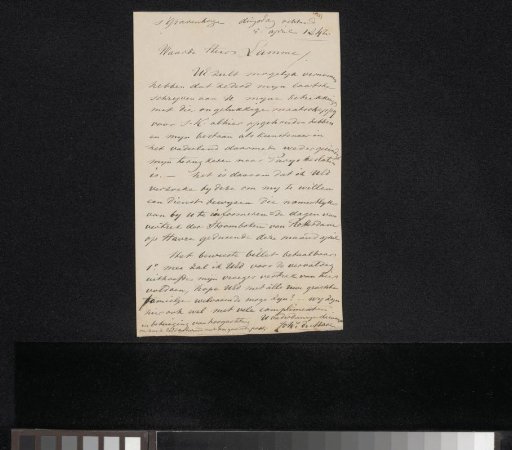 s Gravenhage dingsdag ochtend
5 april 1842.
Waarde Heer Lamme,
UEd zult mogelijk vernomen
hebben dat zedert mijn laatste
schrijven aan U mijne betrekking
met die ongelukkige maatschappij
voor S.K. alhier opgehouden hebben
en mijn bestaan als kunstenaar in
het vaderland daarmede
mijn terug keer naar Parijs besloten
is. — Het is daarom dat ik UEd
verzoeke by deze om my te willen
een dienst bewyzen die namentlyk
van by U te informeren de dagen van
vertrek der Stoomboten van Rotterdam
op Havre gedurende deze maand april.
Het bewuste billet betaalbaar
1e mei zal ik UEd voor de vervaldag
mijn vroeger vertrek van hier
voldoen, hope UEd met alle uwe
familje welvarende moge zijn! — wy zyn
hier ook wel met vele complimenten